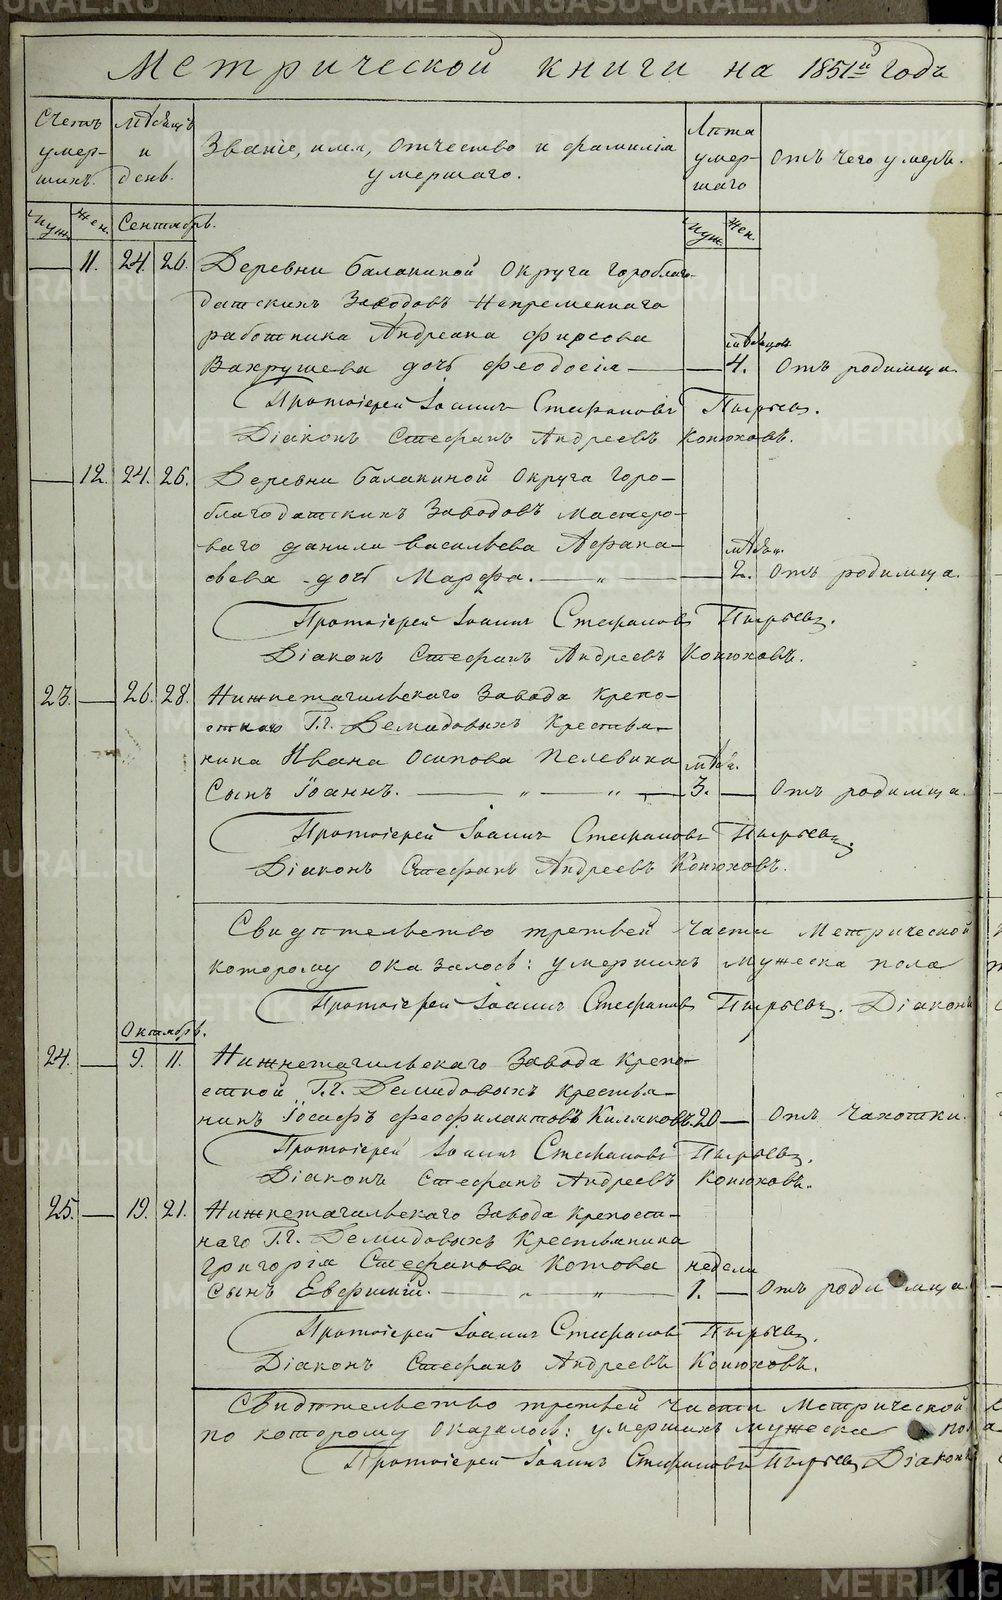 Метрической книги на 1851й годъ
Счетъ умер-шихъ.
Мѣсяцъ и день.
Званіе, имя, отчество и фамилія умершаго.
Лѣта умер-шаго
Отъ чего умеръ.
Муж. Жен. Сентябрь. Муж. Жен.
11. 24 26. Деревни Балакиной Округа Гороблаго-
датскихъ Заводовъ Непременнаго
работника Андреана Фирсова мѣсяцов
Вахрушева дочь Феодосія — — 4. Отъ родимца.
Протоіерей Іоаннъ Стефановъ Пырьевъ.
Діаконъ Стефанъ Андреевъ Конюховъ.
12. 24. 26. Деревни Балакиной Округа Горо-
благодатскихъ Заводовъ Мастеро-
ваго Данила Васильева Афана- мѣсяц.
сьева дочь Марфа. — „ — 2. Отъ родимца.
Протоіерей Іоаннъ Стефановъ Пырьевъ.
Діаконъ Стефанъ Андреевъ Конюховъ.
23. — 26. 28. Нижнетагильскаго Завода крепо-
стнаго Г.г. Демидовыхъ Крестья-
нина Ивана Осипова Пелевина мѣс.
Сынъ Іоаннъ. — „ — „ — 3. — Отъ родимца.
Протоіерей Іоаннъ Стефановъ Пырьевъ.
Діаконъ Стефанъ Андреевъ Конюховъ.
Свидѣтельство третьей Части Метрической
которому оказалось: умершихъ мужеска пола
Протоіерей Іоаннъ Стефановъ Пырьевъ. Діаконъ
Октябрь.
24. — 9. 11. Нижнетагильскаго Завода Крепо-
стной Г.г. Демидовыхъ крестья-
нинъ Іосафъ Феофилактовъ Киляковъ. 20 — Отъ Чахотки.
Протоіерей Іоаннъ Стефановъ Пырьевъ.
Діаконъ Стефанъ Андреевъ Конюховъ.
25. — 19. 21. Нижнетагильскаго Завода Крепост-
наго Г.г. Демидовыхъ Крестьянина
Григорія Стефанова Котова недели
Сынъ Евфршній. — „ — „ — 1. — Отъ родимца.
Протоіерей Іоаннъ Стефановъ Пырьевъ.
Діаконъ Стефанъ Андреевъ Конюховъ.
Свидѣтельство третьей Части Метрической
по которому оказалось: умершихъ мужеска пола
Протоіерей Іоаннъ Стефановъ Пырьевъ Діаконъ